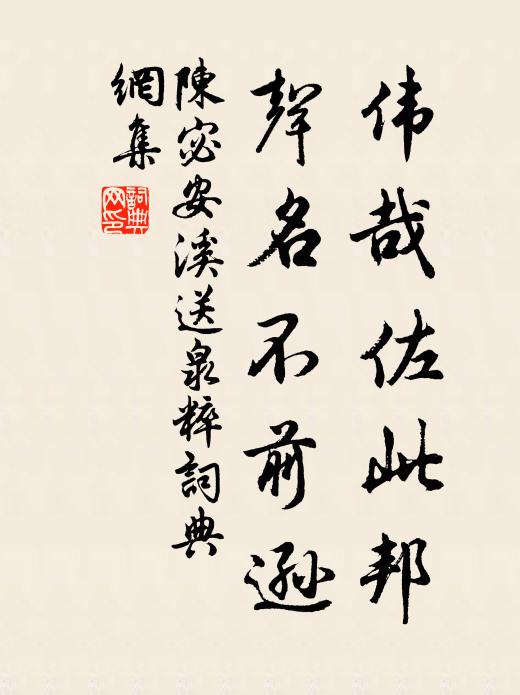 伟哉佐此邦
聲名不前遜
陳宓安溪送泉粹詞典
網集
詞典網印